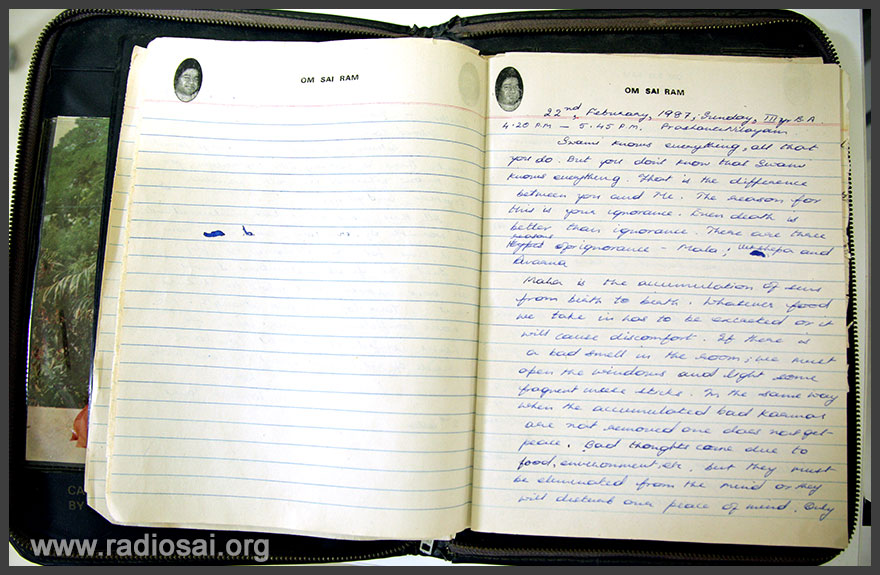 OM SAI RAM
OM SAI RAM
22nd, February, 1987, Sunday, III yr. B.A
4.20 P.M — 5.45 P.M. Prashanti Nilayam
Swami knows everything, all that
you do. But you don't know that Swami
knows everything. That is the difference
between you and Me. The reason for
this is your ignorance. Even death is
better than ignorance. There are three
reasons
types of ignorance - Mala, Vikshepa and
Avarna
Mala is the accumulation of sins
from birth to birth. Whatever food
we take in has to be excreted or it
will cause discomfort. If there is
a bad smell in the room, we must
open the windows and light some
fragrant incense sticks. In the same way
when the accumulated bad karmas
are not removed one does not get
peace. Bad thoughts come due to
food, environment etc. but they must
be eliminated from the mind or they
will disturb our peace of mind. Only
CA
BY
www.radiosai.org